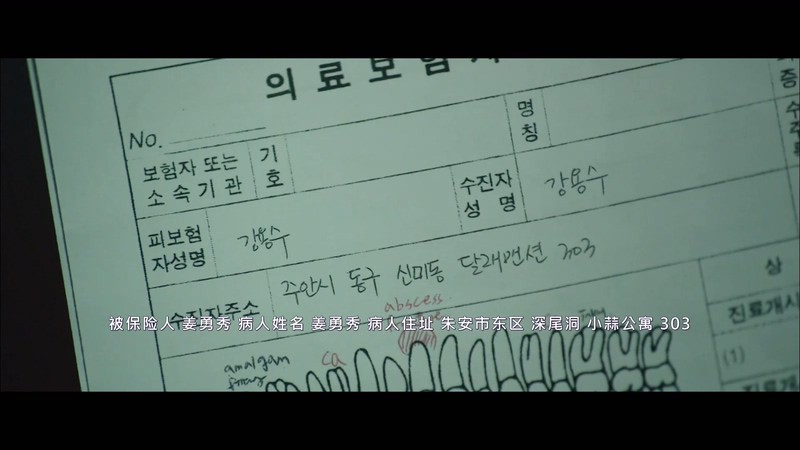 의료보험
No.
명
칭
보험자 또는
소속기관
기
호
피보험
자성명
강용수
수진자
성 명
강용수
수진자주소
주안시 동구 신미동 달래맨션 303
증
수
상
被保险人 姜勇秀 病人姓名 姜勇秀 病人住址 朱安市东区 深尾洞 小蒜公寓 303
abscess
진료개시
amalgam
ca
(1)
진료개